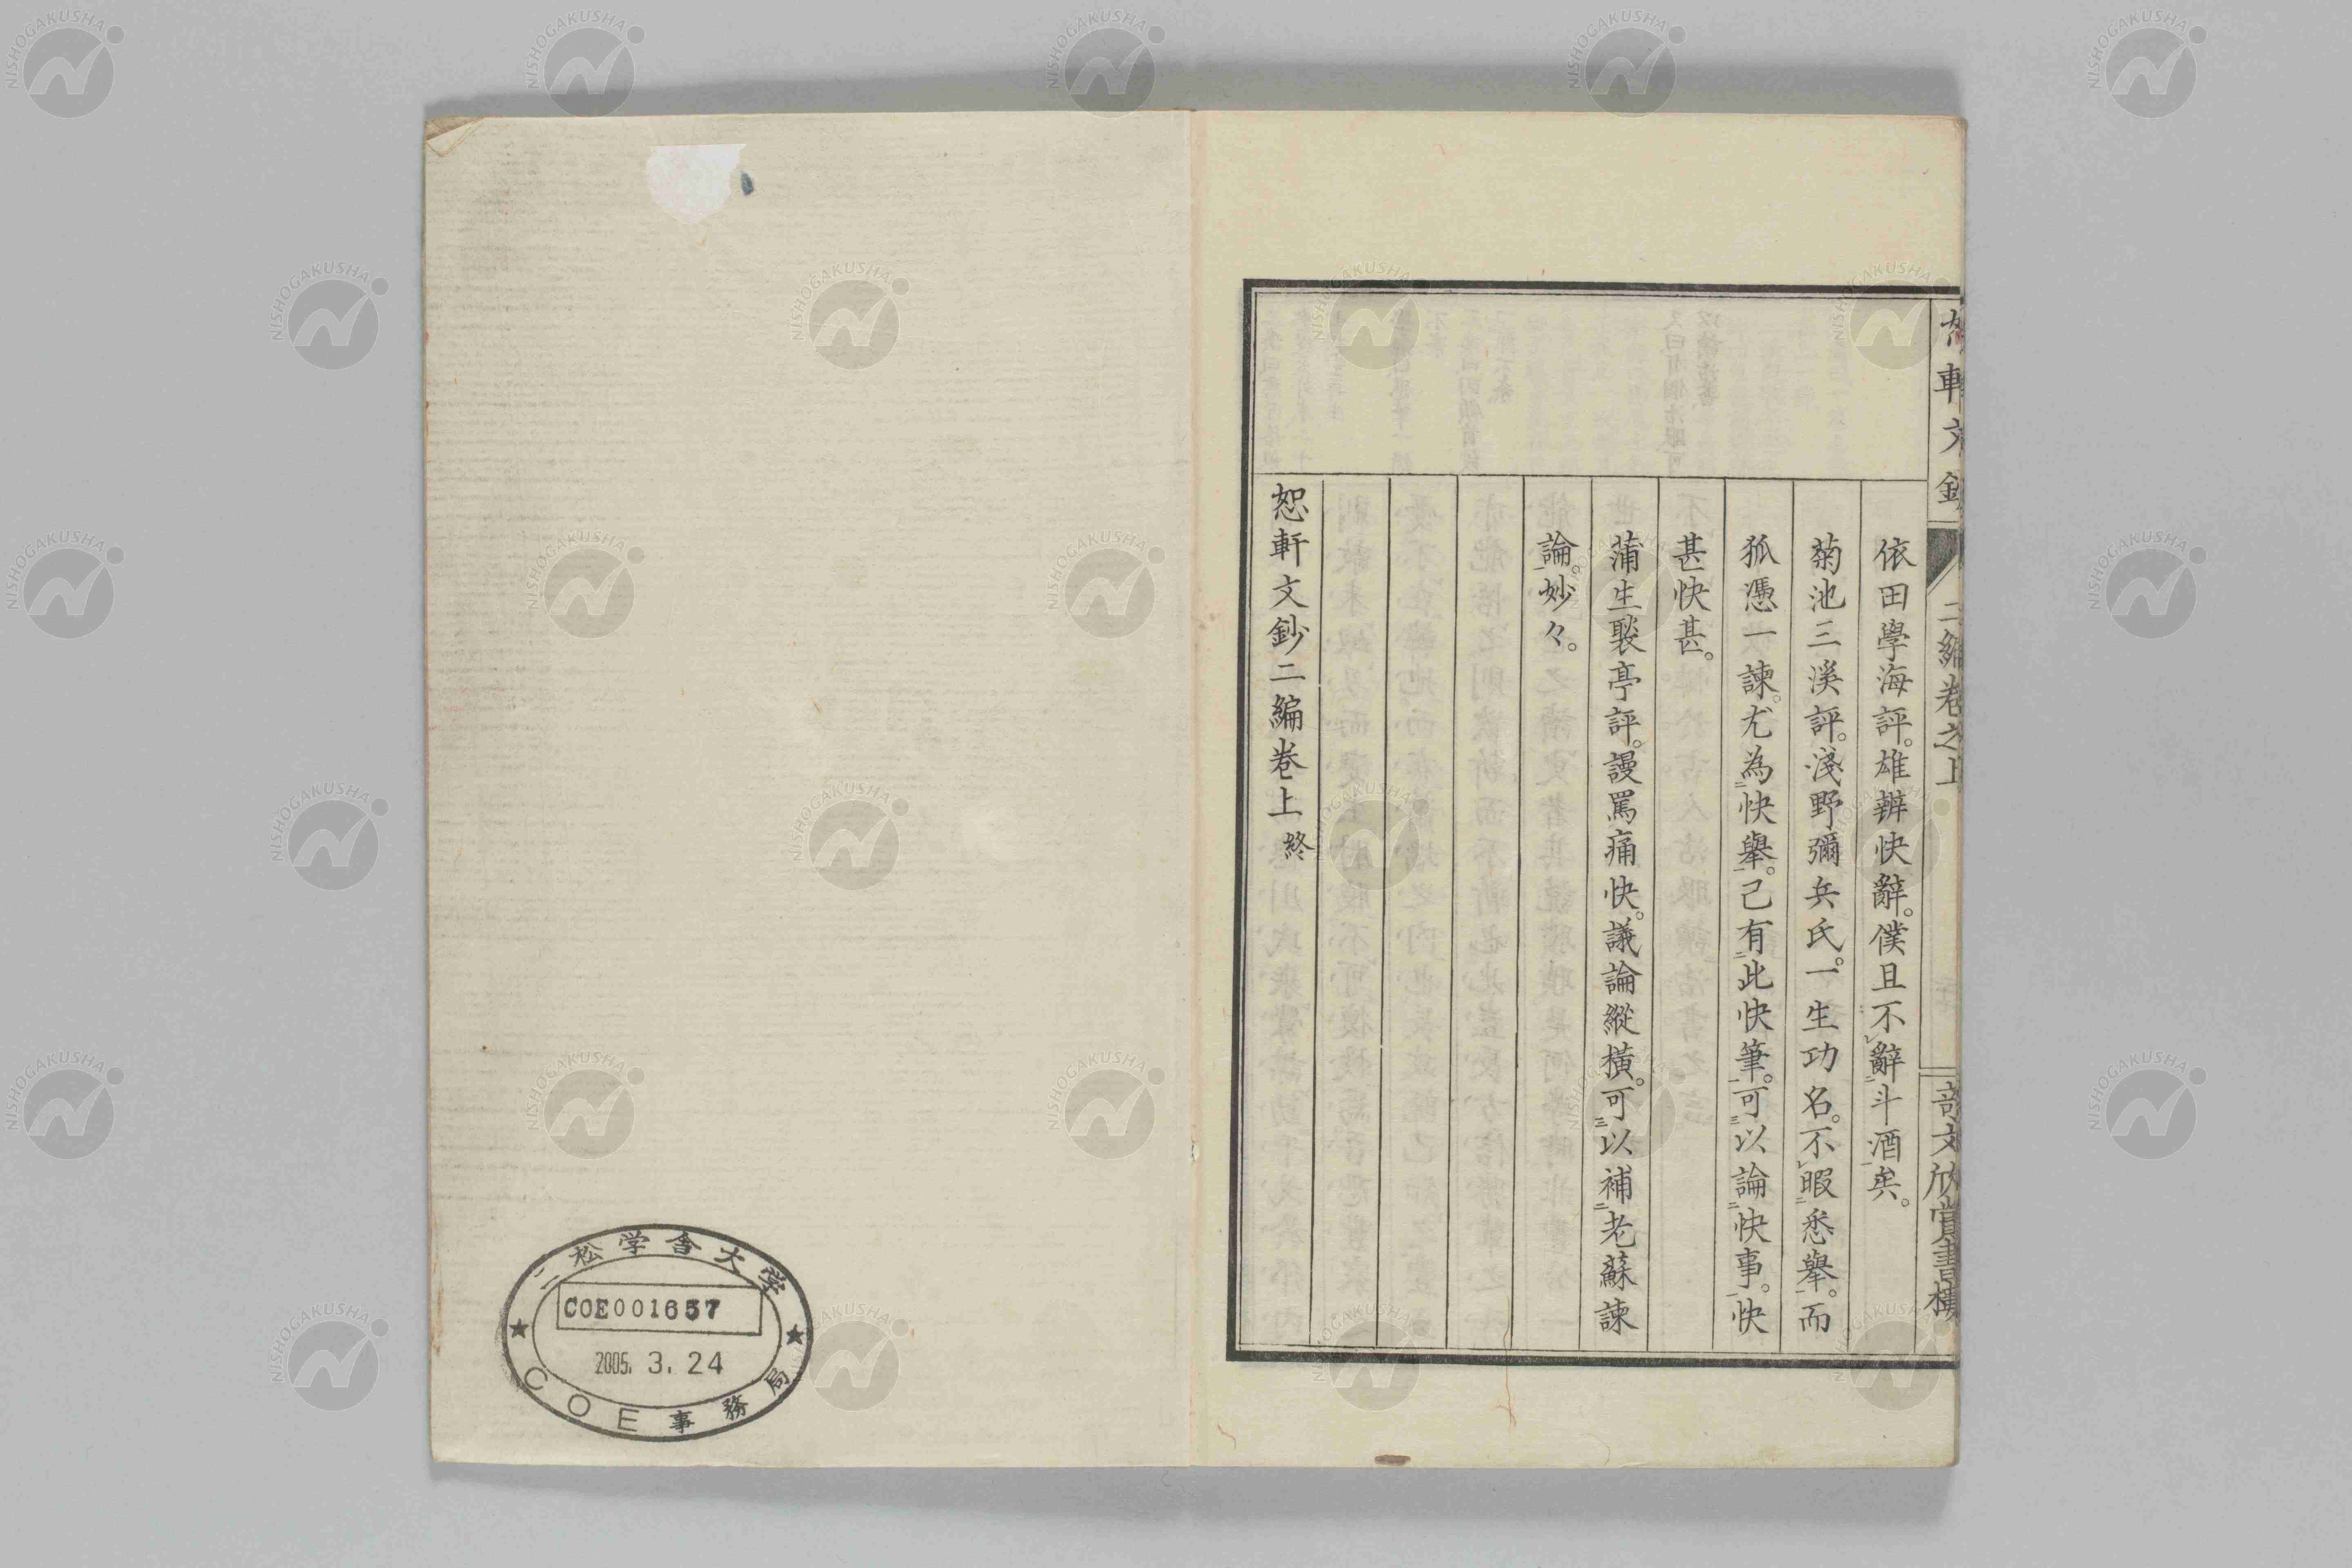 恕軒文鈔
二編卷之上
奇文欣賞書樓
依田學海評。雄辨快辭。僕且不㆑辭㆓斗酒㆒矣。
菊池三溪評。淺野彌兵氏。一生功名。不㆑暇㆓悉舉㆒。而
狐憑一諫。尤為㆓快舉㆒。己有㆓此快筆㆒。可㆔以論㆓快事㆒。快
甚快甚。
蒲生褧亭評。謾罵痛快。議論縱橫。可㆔以補㆓老蘇諫
論㆒。妙々。
恕軒文鈔二編卷上 終
二松学舎大学
COE001657
2005. 3. 24
COE事務局